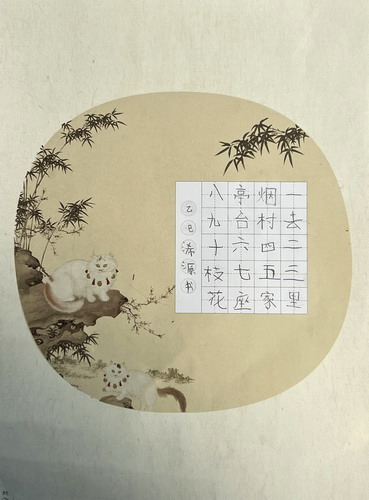 一去二三里
烟村四五家
亭台六七座
八九十枝花
乙巳浠源书